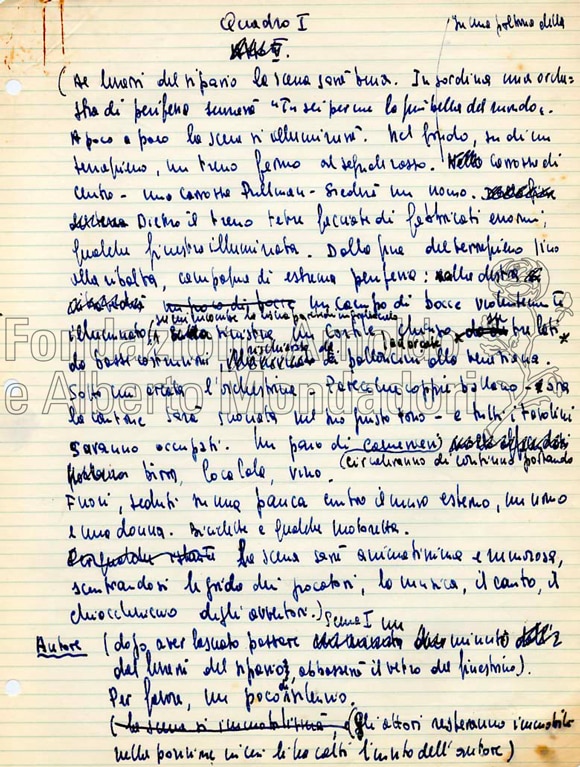 Quadro I
In una poltrona della
(Al levarsi del sipario la scena sarà buia. In sordina una orche-
stra di periferia suonerà "Tu sei per me la più bella del mondo".
A poco a poco la scena si illuminerà. Nel fondo, su di un
terrapieno, un treno fermo al segnale rosso. carrozza di
centro - una carrozza Pullman - siederà un uomo.
Dietro il treno tetre facciate di fabbricati enormi;
qualche finestra illuminata. Dalla fine del terrapieno fino
alla ribalta, campagna di estrema periferia: alla destra
un campo di bocce violentemente
illuminato, sinistra un cortile chiuso tre lati
da basse costruzioni, rischiarato da palloncini alla veneziana.
Sotto un'arcata l'orchestrina - Parecchie coppie ballano -
la canzone sarà suonata nel suo giusto tono - e tutti i tavolini
saranno occupati. Un paio di camerieri
(circoleranno di continuo portando
birra, Coca Cola, vino.
Fuori, seduti su una panca contro il muro esterno, un uomo
e una donna. Biciclette e qualche motoretta.
La scena sarà animatissima e rumorosa,
scontrandosi le grida dei giocatori, la musica, il canto, il
chiacchierio degli avventori.)
Scena I
Autore (dopo aver lasciato passare un minuto
dal levarsi del sipario, abbasserà il vetro del finestrino).
Per favore, un poco di silenzio.
(la scena si immobilizzerà, (gli attori resteranno immobili
nella posizione in cui li ha colti l'invito dell'autore)
Fondazione Arnoldo
e Alberto Mondadori